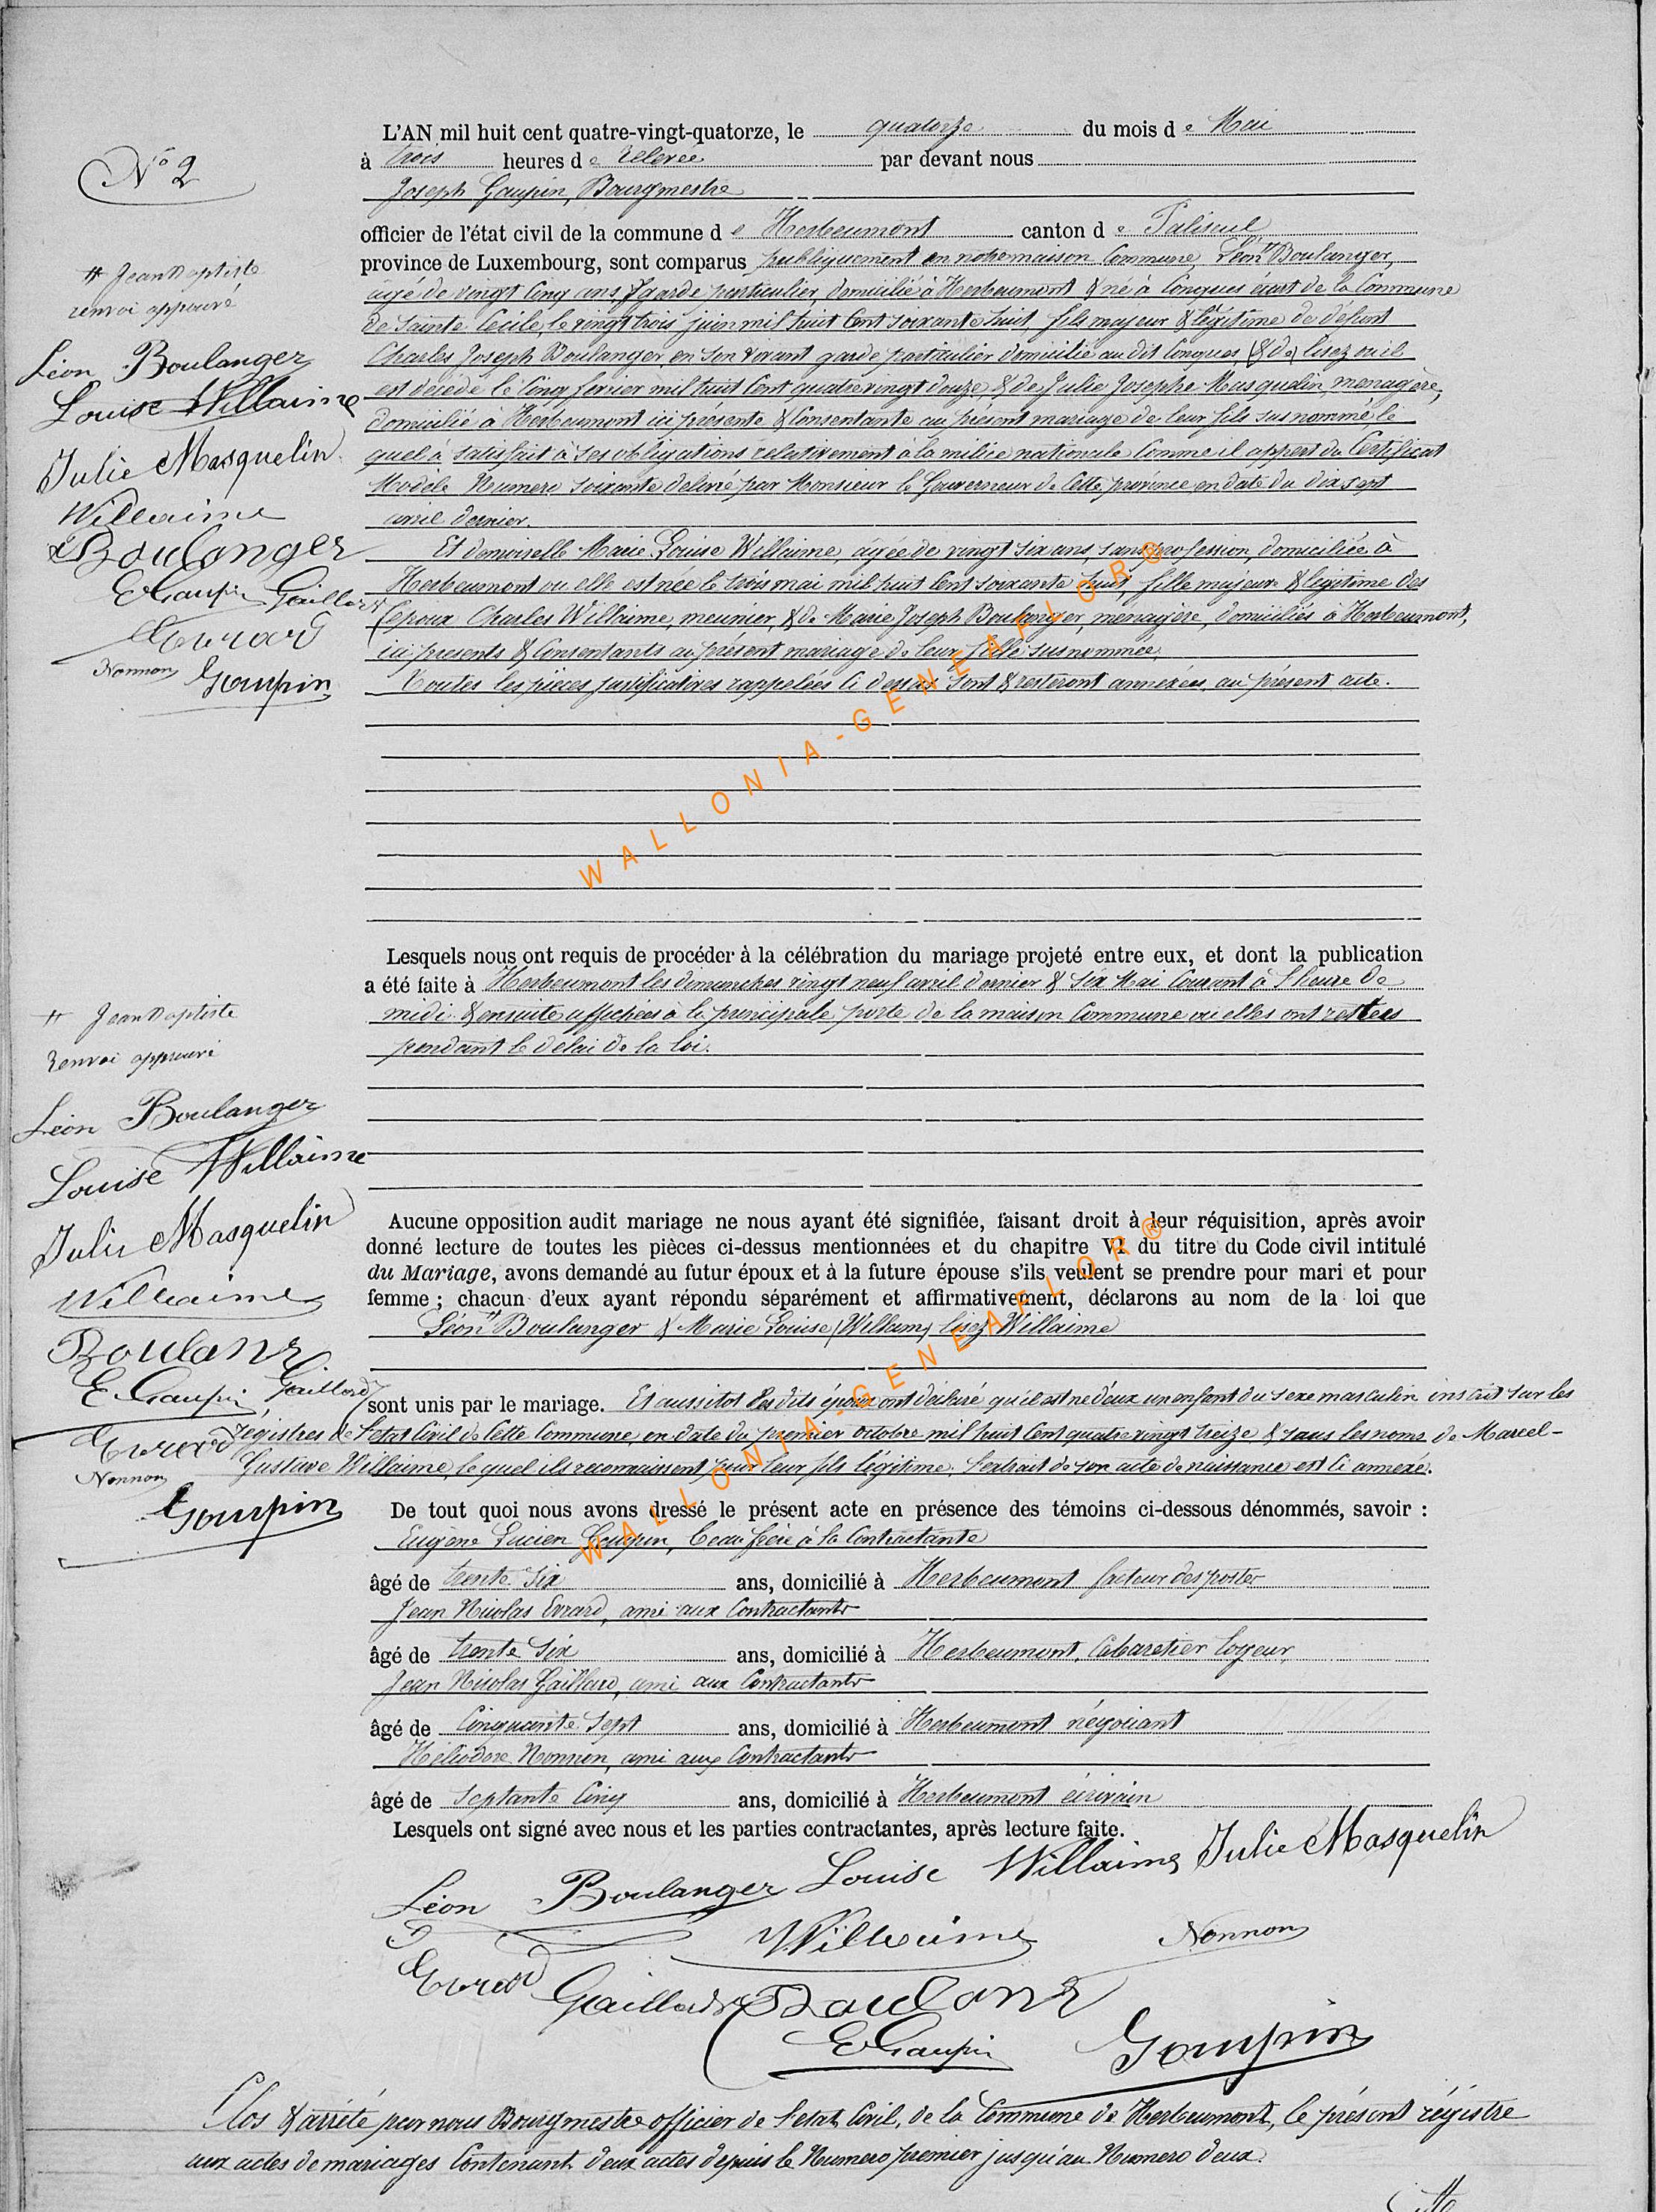 N° 2
L'AN mil huit cent quatre-vingt-quatorze, le quatorze du mois de Mai
à trois heures de relevée par devant nous
Joseph Goupin, Bourgmestre
officier de l'état civil de la commune de Herbeumont canton de Paliseul
province de Luxembourg, sont comparus publiquement en notre maison Commune, Léon # Boulanger,
âgé de vingt cinq ans, garde particulier, domicilié à Herbeumont & né à Conques écart de la Commune
de Sainte Cécile, le vingt trois juin mil huit Cent soixante huit, fils majeur & légitime de défunt
Charles Joseph Boulanger, en son vivant garde particulier domicilié au dit Conques (& de) lisez où il
est décédé le Cinq février mil huit Cent quatre vingt douze, & de Julie Josephe Masquelin, menagère,
domicilié à Herbeumont ici présente & Consentante au présent mariage de leur fils sus nommé, le
quel à satisfait à ses obligations relativement à la milice nationale Comme il appert du Certificat
Modèle Numero soixante délivré par Monsieur le Gouverneur de Cette province en date du dix sept
avril dernier.
Et demoiselle Marie Louise Willaime, âgée de vingt six ans, sans profession, domiciliée à
Herbeumont ou elle est née le trois mai mil huit Cent soixante huit, fille majeure & légitime des
époux Charles Willaime, meunier, & de Marie Joseph Boulanger, menagère, domiciliés à Herbeumont,
ici presents & Consentants au présent mariage de leur fille susnommée.
Toutes les pièces justificatives rappelées Ci dessus sont & resteront annexées au présent acte.
# Jean Baptiste
renvoi approuvé
Léon Boulanger
Louise Willaime
Julie Masquelin
Willaime
Boulanger
E Goupin Gaillard
Evrard
Nonnon Goupin
WALLONIA-GENEAFLOR®
Lesquels nous ont requis de procéder à la célébration du mariage projeté entre eux, et dont la publication
a été faite à Herbeumont les dimanches vingt neuf avril dernier & six Mai Courant à l'heure de
midi & ensuite affichées à la principale porte de la maison Commune où elles ont restées
pendant le délai de la loi.
# Jean Baptiste
renvoi approuvé
Léon Boulanger
Louise Willaime
Julie Masquelin
Willaime
Boulang
E. Goupin Gaillard
Evrard
Nonnon
Goupin
Aucune opposition audit mariage ne nous ayant été signifiée, faisant droit à leur réquisition, après avoir
donné lecture de toutes les pièces ci-dessus mentionnées et du chapitre VI du titre du Code civil intitulé
du Mariage, avons demandé au futur époux et à la future épouse s'ils veulent se prendre pour mari et pour
femme ; chacun d'eux ayant répondu séparément et affirmativement, déclarons au nom de la loi que
Léon # Boulanger & Marie Louise (Willam) lisez Willaime
sont unis par le mariage. Et aussitot les dits époux ont déclaré qu'il est né d'eux un enfant du sexe masculin inscrit sur les
régistres de l'état Civil de Cette Commune, en date du premier octobre mil huit Cent quatre vingt treize & sous les noms de Marcel-
Gustave Willaime, le quel ils reconnaissent pour leur fils légitime. l'extrait de son acte de naissance est Ci annexé.
WALLONIA-GENEAFLOR®
De tout quoi nous avons dressé le présent acte en présence des témoins ci-dessous dénommés, savoir :
Eugène Lucien Goupin, beau frère à la Contractante
âgé de trente six ans, domicilié à Herbeumont facteur des postes
Jean Nicolas Evrard, ami aux Contractants
âgé de trente six ans, domicilié à Herbeumont, Cabaretier logeur
Jean Nicolas Gaillard, ami aux Contractants
âgé de Cinquante Sept ans, domicilié à Herbeumont négociant
Héliodore Nonnon, ami aux Contractants
âgé de Septante Cinq ans, domicilié à Herbeumont écrivain
Lesquels ont signé avec nous et les parties contractantes, après lecture faite.
Léon Boulanger Louise Willaime Julie Masquelin
Willaime Nonnon
Evrard Gaillard Boulang
E Goupin Goupin
Clos & arrêté par nous Bourgmestre officier de l'état Civil, de la Commune de Herbeumont, le présent régistre
aux actes de mariages Contenant deux actes depuis le Numero premier jusqu'au Numero deux.